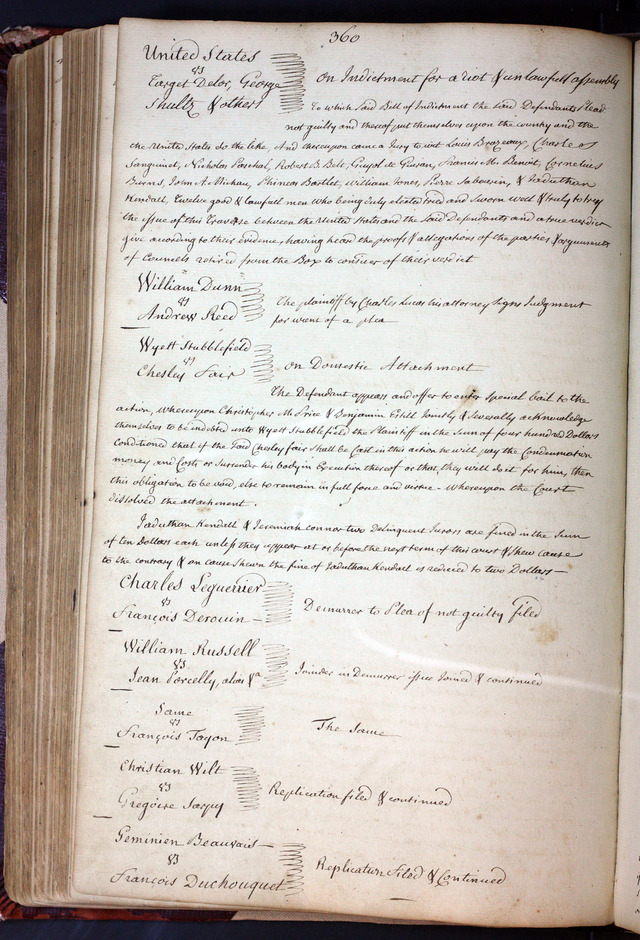 360
United States
vs
Target Delor, George
Shultz & others
On Indictment for a riot & unlawfull assembly
To which said Bill of Indictment the said Defendants Plead
not guilty and thereof put themselves upon the country and the
the United States do the like, And thereupon came a Jury to wit Louis Brazeaux, Charles
Sanguinet, Nicholas Paschal, Robert B. Belt, Guyol de Guiran, Francis M. Benoit, Cornelius
Burns, John A. Michau, Phineas Bartlet, William Jones, Pierre Sabourin, & Jaduthan
Kendall, twelve good & lawfull men who being duly elected tried and Sworn well & truly to try
the issue of this Traverse between the United States and the said Defendants and a true verdict
give according to their evidence, having heard the proofs & allegations of the parties & arguments
of Counsels retired from the Box to consider of their verdict
William Dunn
vs
Andrew Reed
The plaintiff by Charles Lucas his attorney Signs Judgment
for want of a plea
Wyett Stubblefield
vs
Chesley Fair
On Domestic Attachment
The Defendant appears and offer to enter Special bail to the
action, whereupon Christopher M. Price & Benjamin Estill Jointly & Severally acknowledge
themselves to be indebted unto Wyett Stubblefield the Plaintiff in the Sum of four hundred Dollars
Conditioned that if the Said Chesley fair Shall be Cast in this action he will pay the Condemnation
money and Costs or Surrender his body in Execution thereof or that, they will do it for him, then
this obligation to be void, else to remain in full force and virtue - Whereupon the Court
dissolved the attachment.
Jaduthan Kendall & Jeremiah connor two Delinquent Jurors are fined in the Sum
of ten Dollars each unless they appear at or before the next term of this court & Shew Cause
to the contrary & on cause Shewn the fine of Jaduthan Kendall is reduced to two Dollars —
Charles Leguerrier
vs
François Derouin —
Demurrer to Plea of not guilty filed
William Russell
vs
Jean Porcelly, alias &a
Joinder in Demurrer issue Joined & continued
Same
vs
François Tayon
The Same
Christian Wilt
vs
Grégoire Sarpy
Replication filed & continued
Geminien Beauvais —
vs
François Duchouquet
Replication Filed & Continued